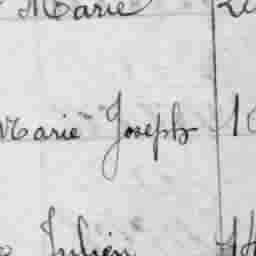 Marie
Marie Joseph
Julien